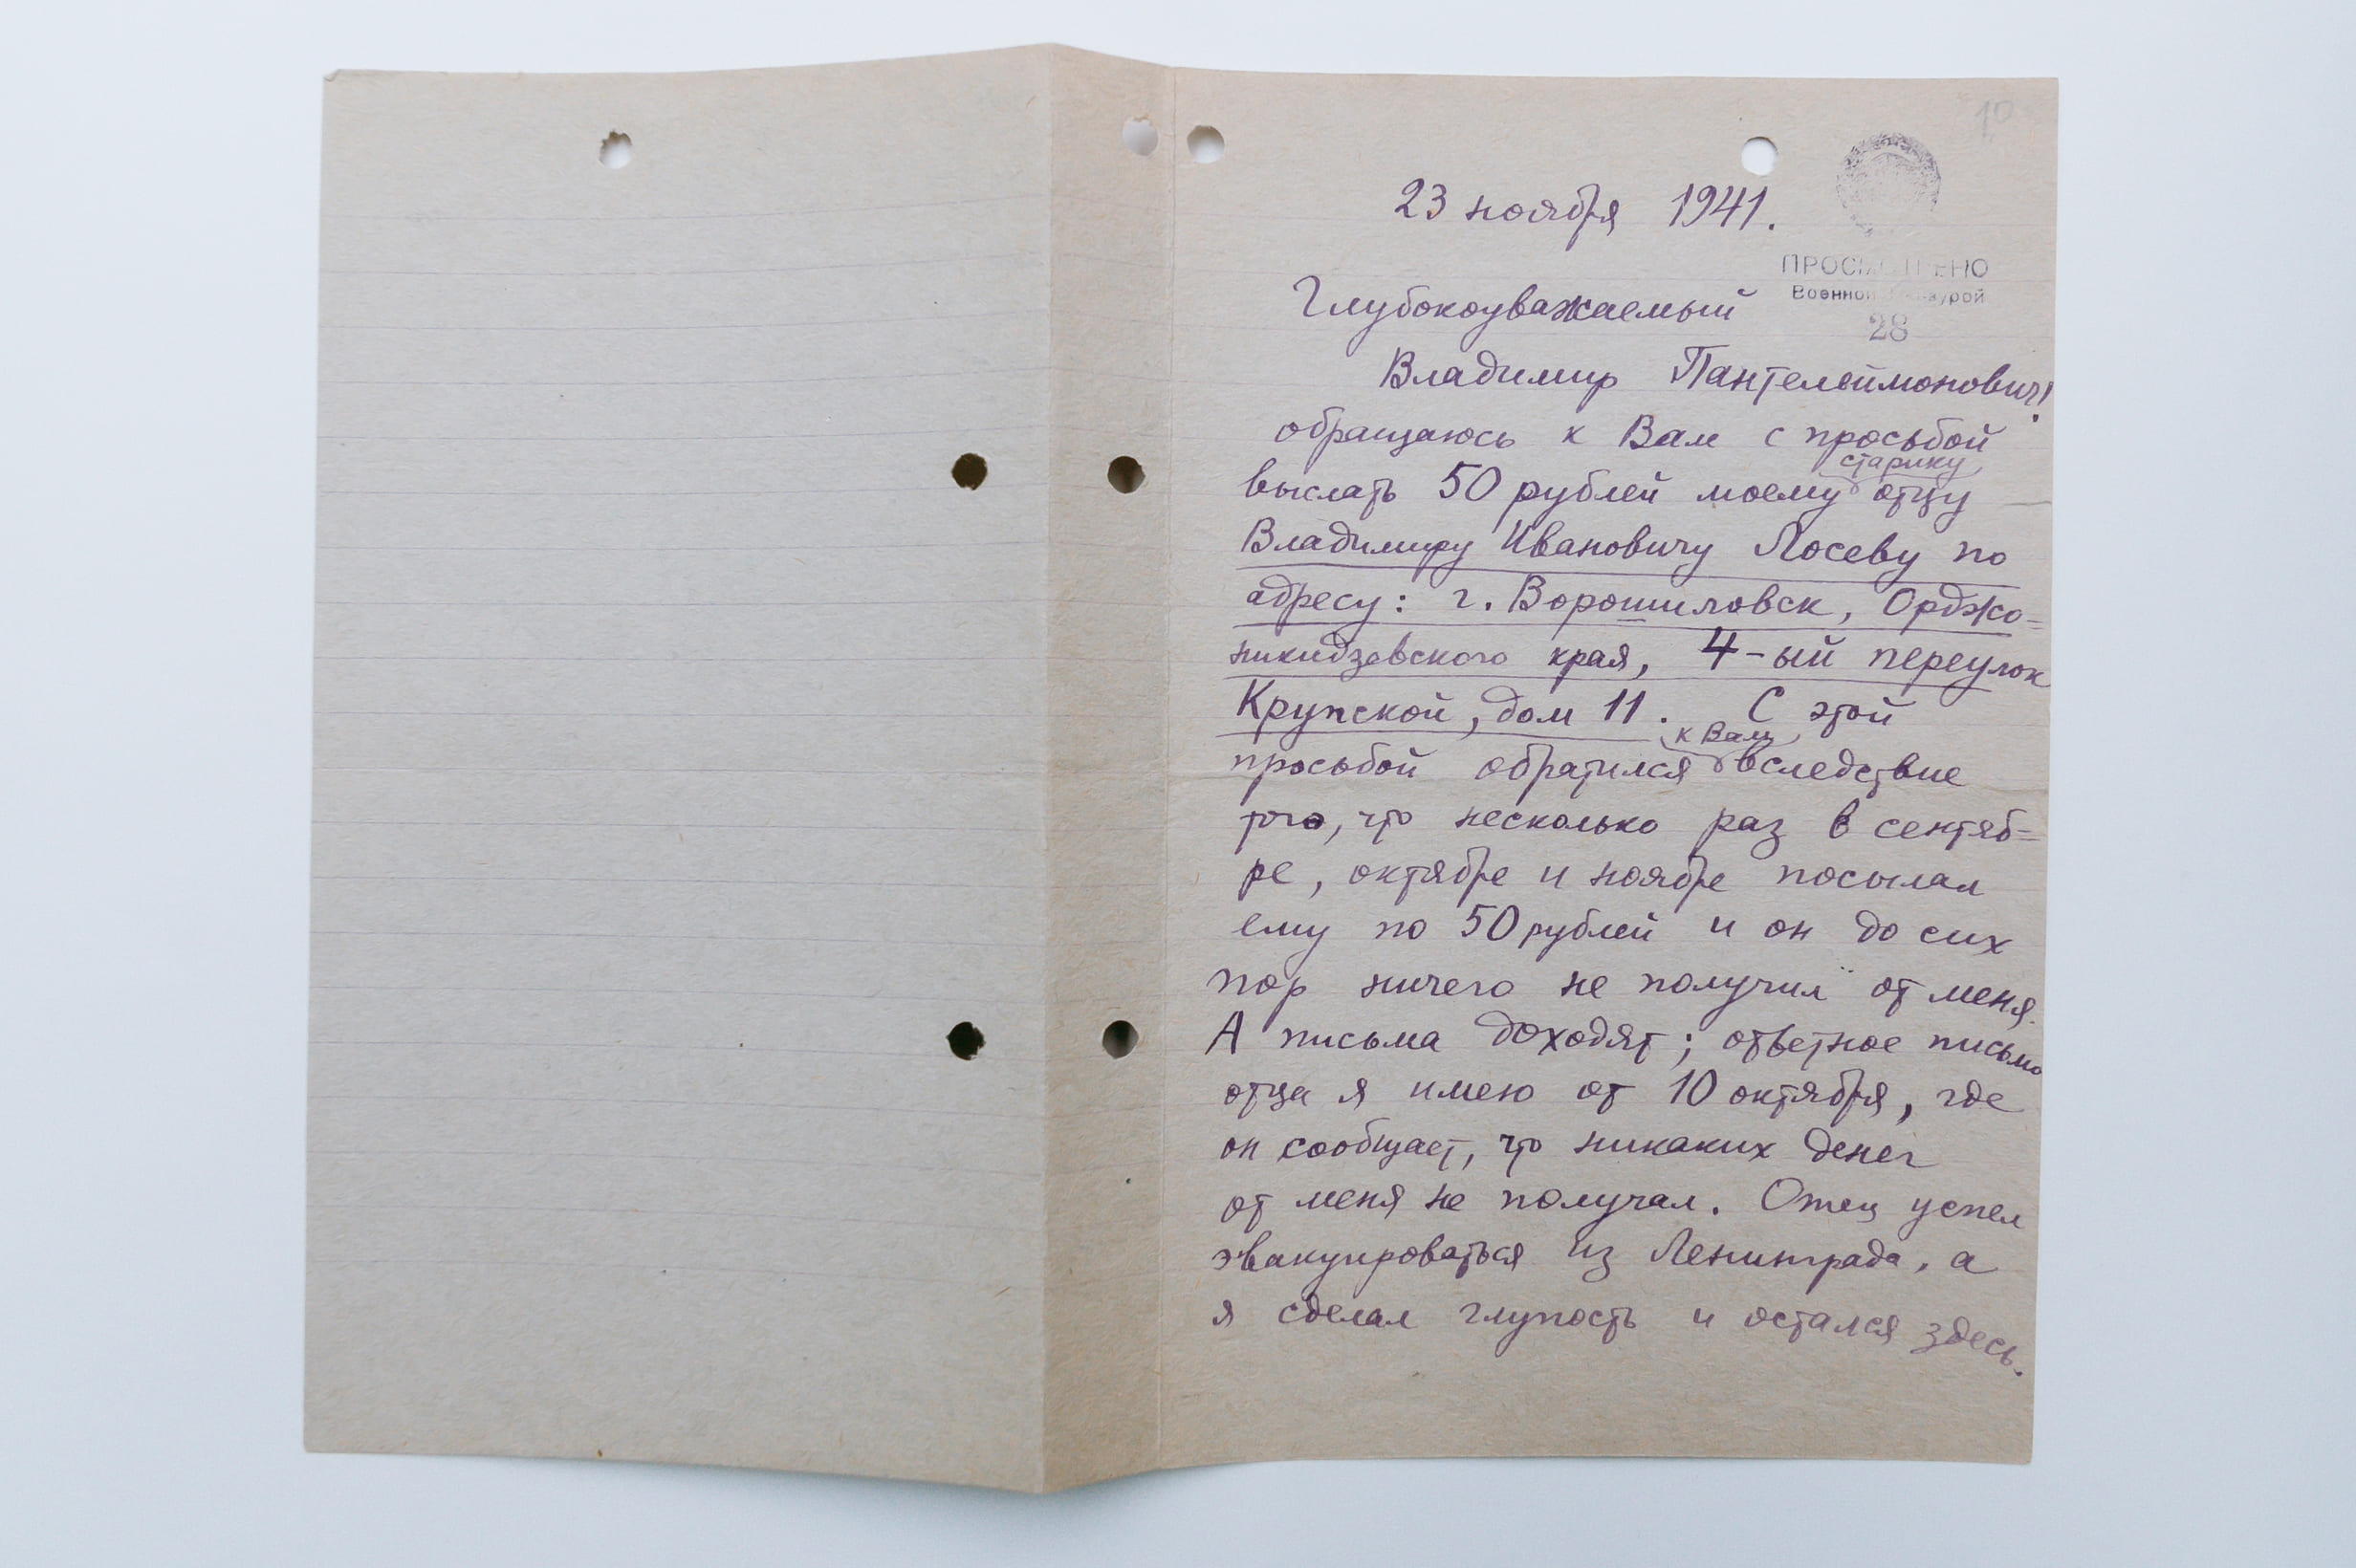 10
23 ноября 1941.
ПРОСМОТРЕНО
Военной Цензурой
28
Глубокоуважаемый
Владимир Пантелеймонович!
обращаюсь к Вам с просьбой
старику
выслать 50 рублей моему отцу
Владимиру Ивановичу Лосеву по
адресу: г. Ворошиловск, Орджо=
никидзевского края, 4-ый переулок
Крупской, дом 11. С этой
к Вам
просьбой обратился вследствие
того, что несколько раз в сентяб=
ре, октябре и ноябре посылал
ему по 50 рублей и он до сих
пор ничего не получил от меня.
А письма доходят; ответное письмо
отца я имею от 10 октября, где
он сообщает, что никаких денег
от меня не получал. Отец успел
эвакуироваться из Ленинграда, а
я сделал глупость и остался здесь.